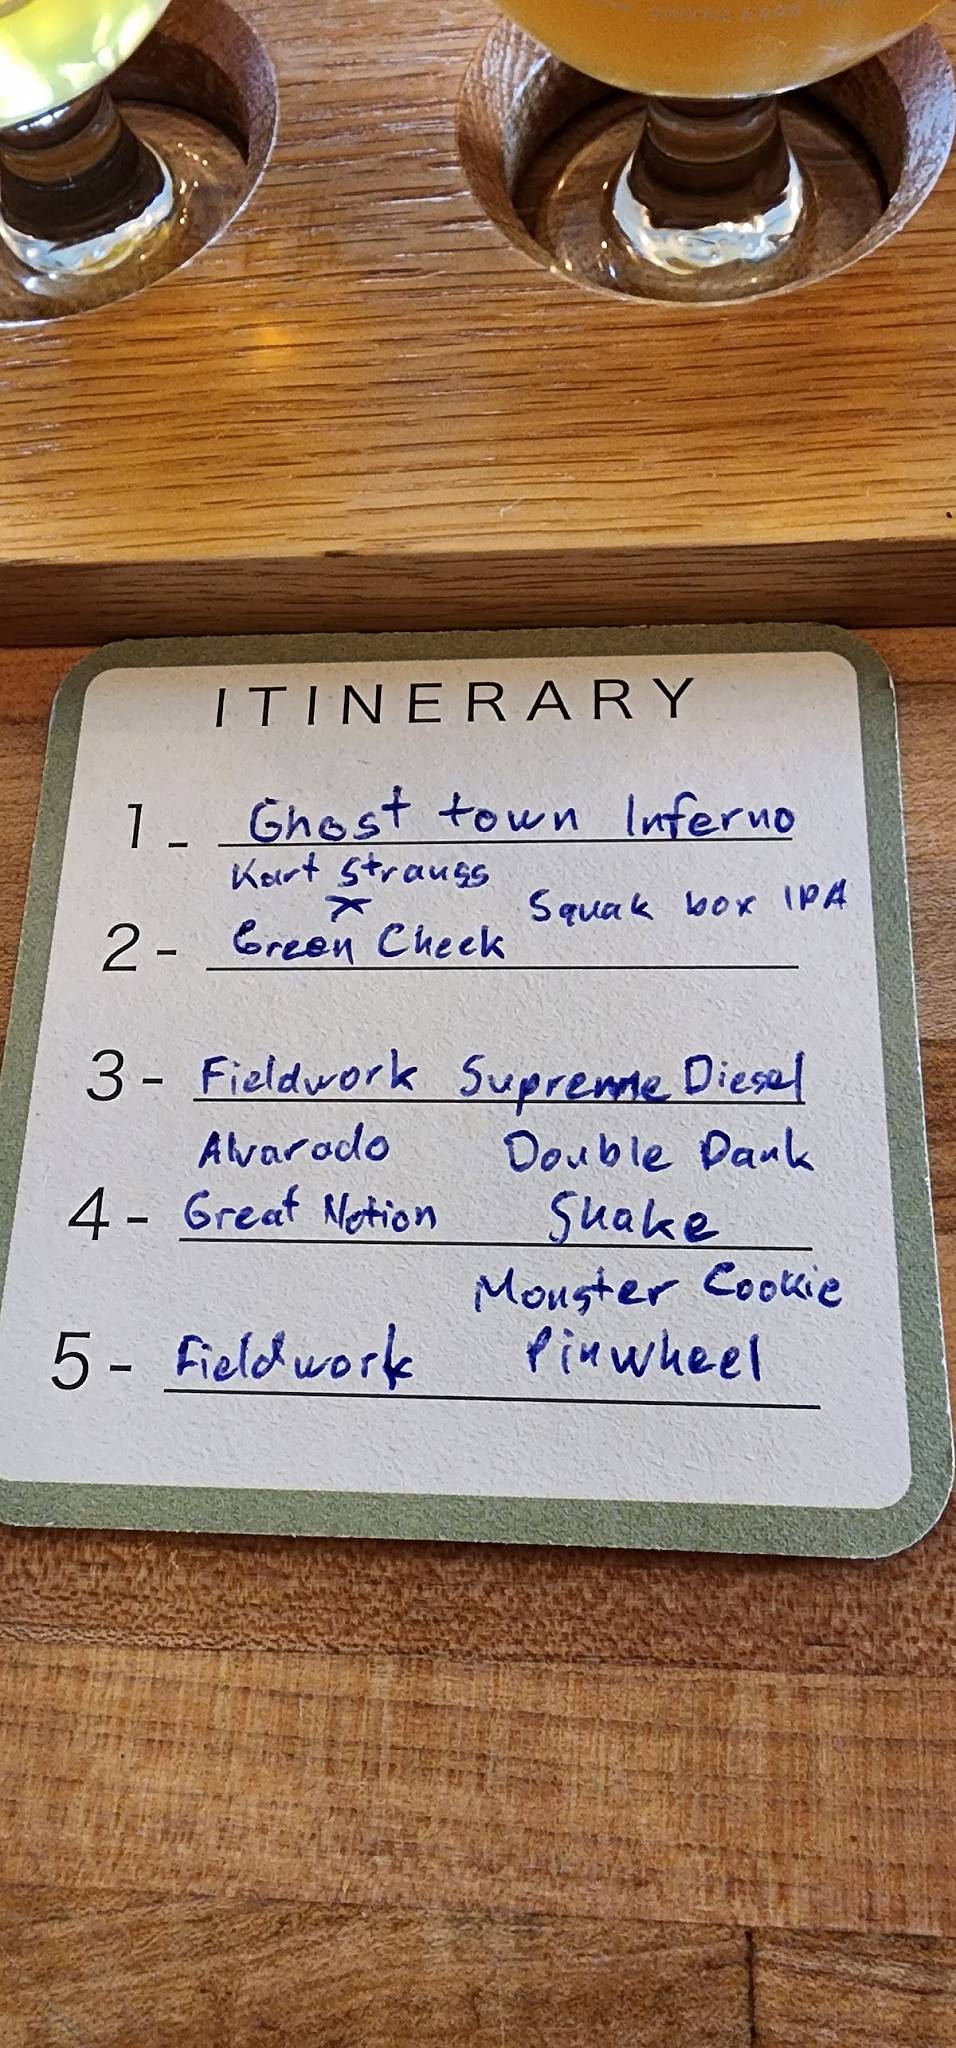 ITINERARY
1 - Ghost town Inferno
Kart Strauss
x
Squak box IPA
2 - Green Cheek
3 - Fieldwork Supreme Diesel
Alvarado Double Dank
4 - Great Notion Shake
Monster Cookie
5 - Fieldwork Pinwheel